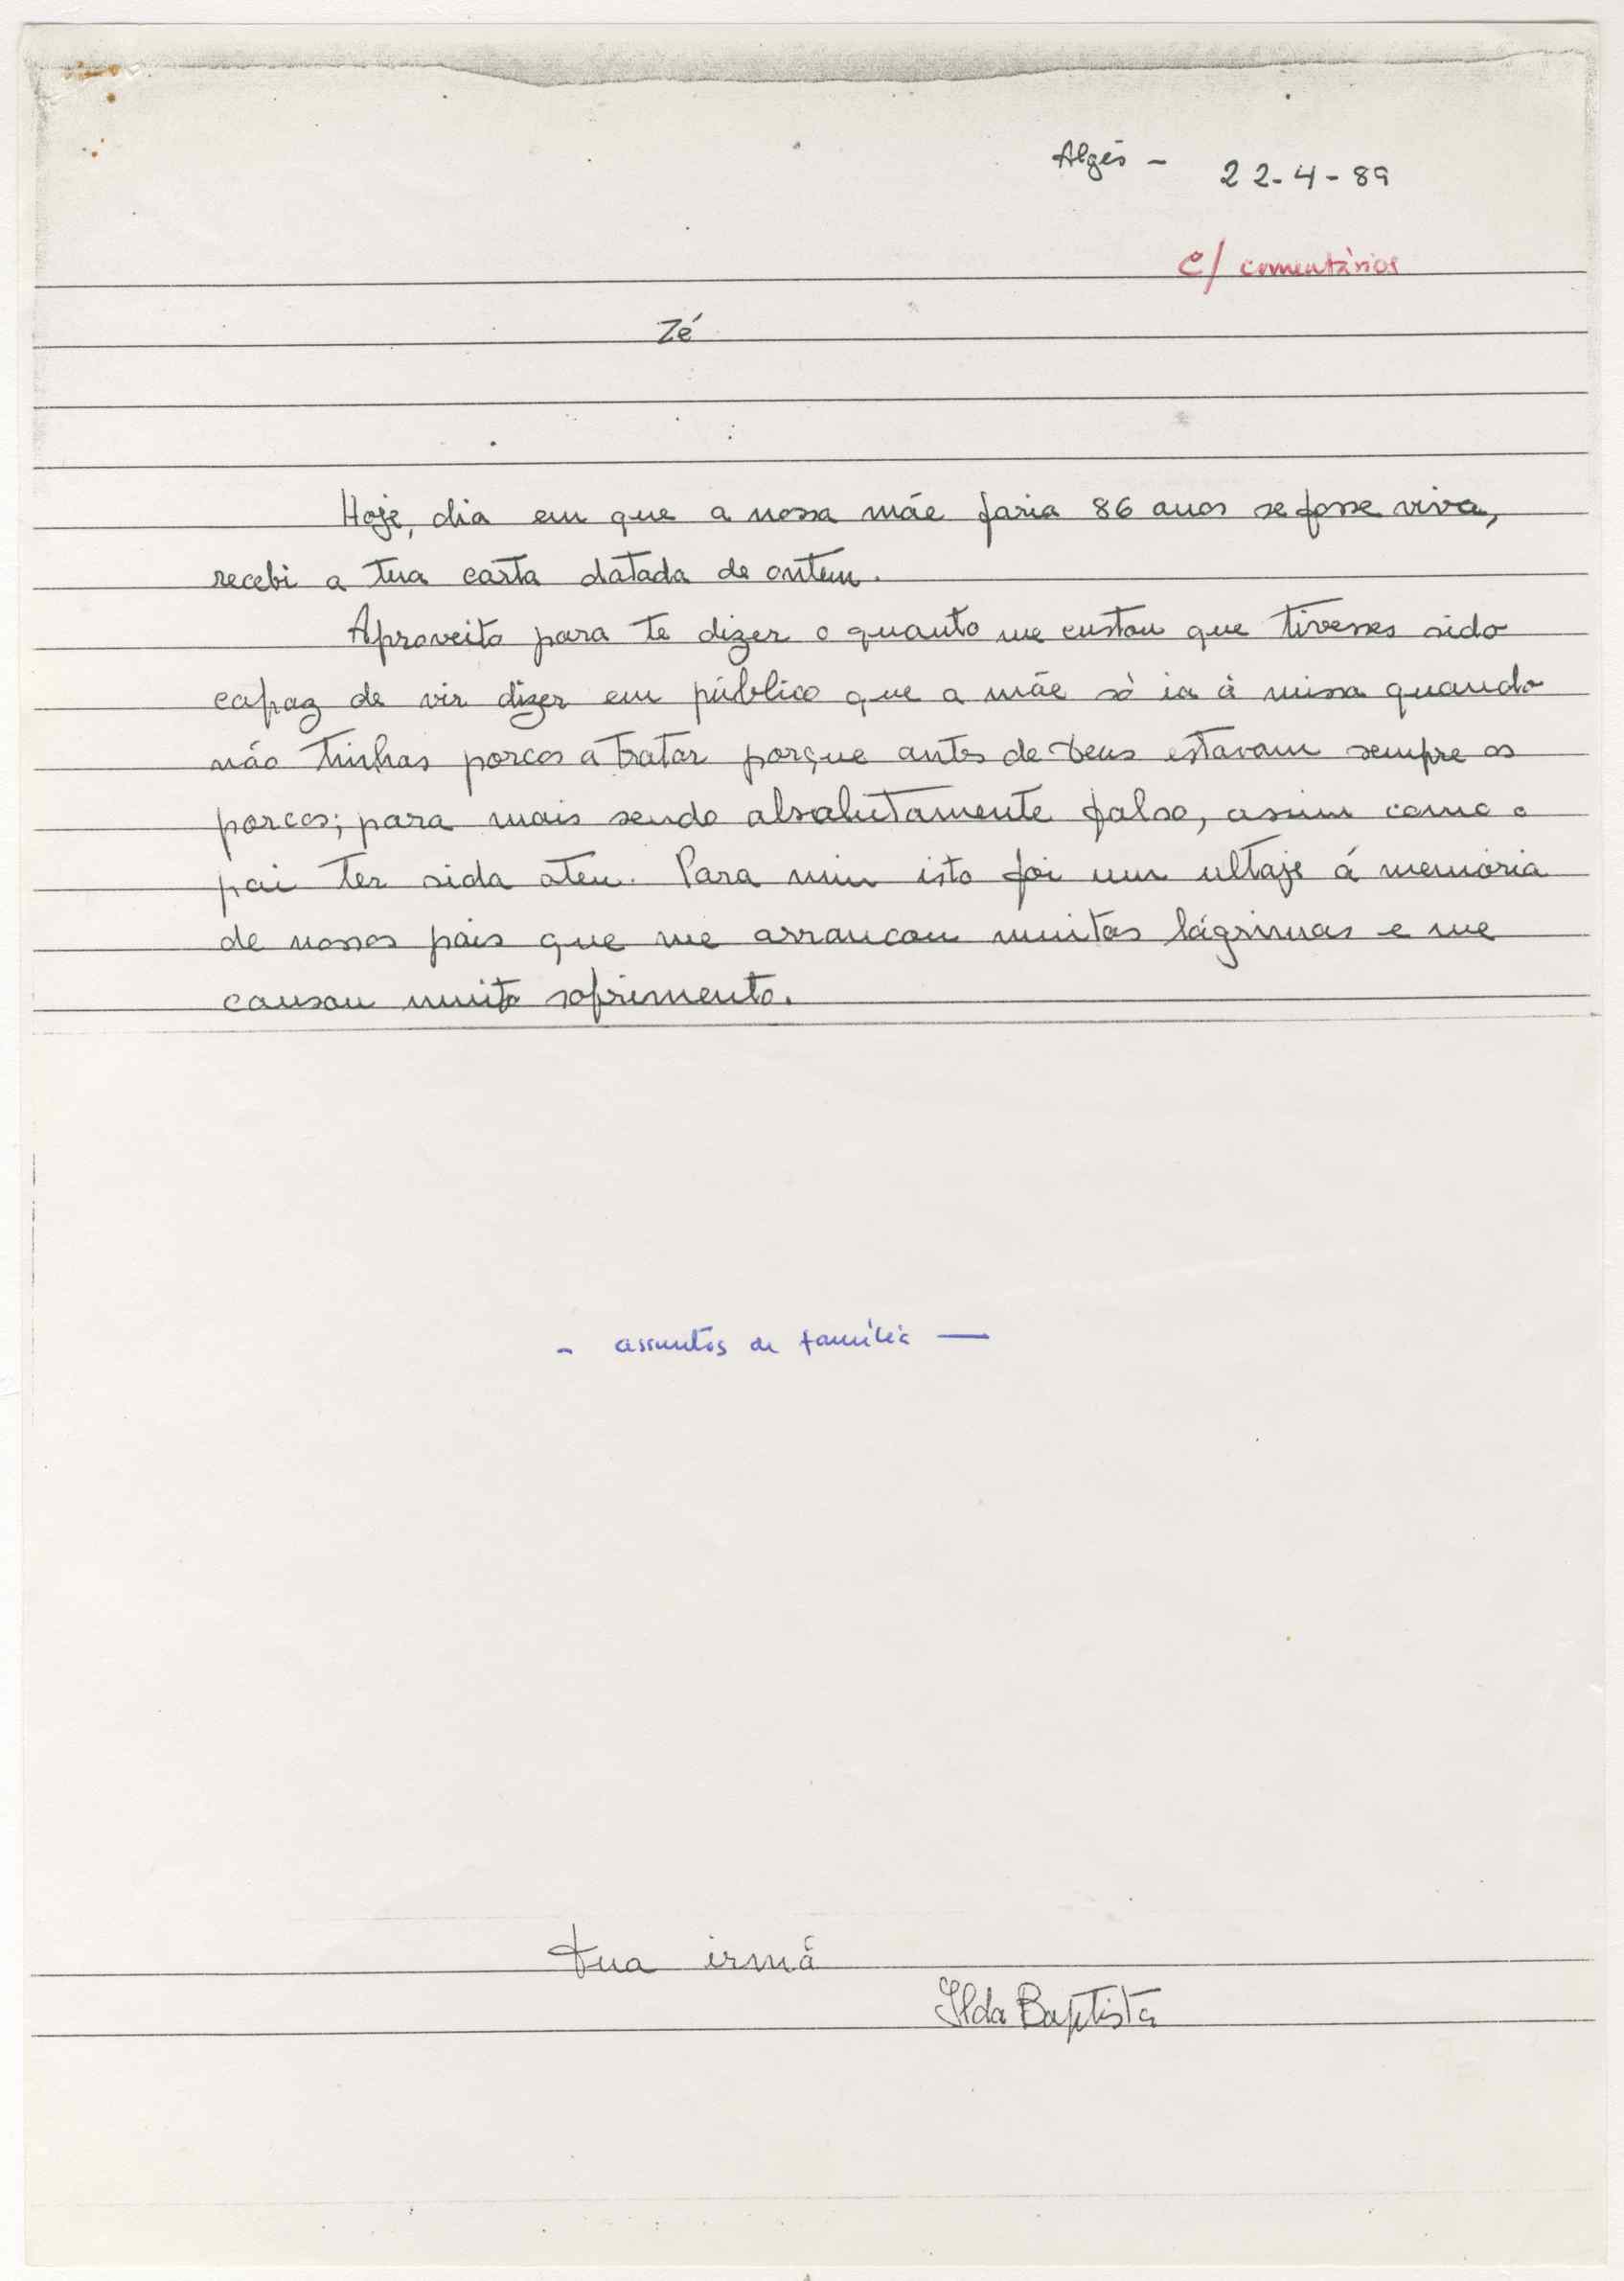 Algés - 22-4-89
c/ comentários
Zé
Hoje, dia em que a nossa mãe faria 86 anos se fosse viva,
recebi a tua carta datada de ontem.
Aproveito para te dizer o quanto me custou que tivesses sido
capaz de vir dizer em público que a mãe só ia à missa quando
não tinhas porcos a tratar porque antes de Deus estavam sempre os
porcos; para mais sendo absolutamente falso, assim como o
pai ter sido ateu. Para mim isto foi um ultaje á memória
de nossos pais que me arrancou muitas lágrimas e me
causou muito sofrimento.
- assuntos de família —
tua irmã
Ilda Baptista